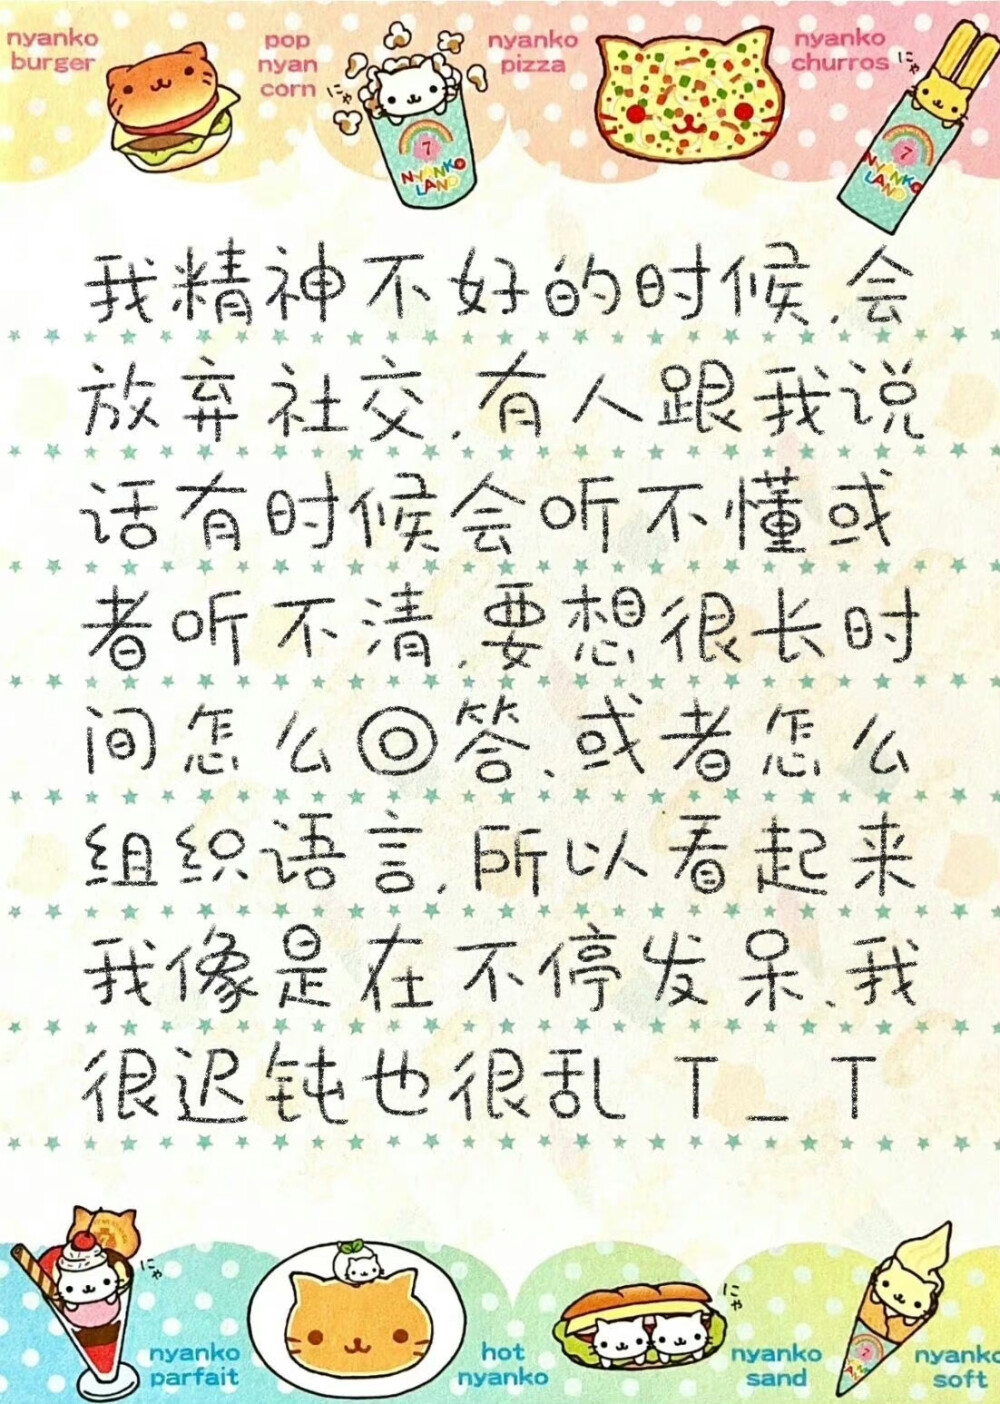 nyanko burger
pop nyan corn
にゃ
nyanko pizza
nyanko churros
にゃ
7
NYANKO LAND
7
NYANKO LAND
我精神不好的时候,会
放弃社交,有人跟我说
话有时候会听不懂或
者听不清,要想很长时
间怎么回答、或者怎么
组织语言,所以看起来
我像是在不停发呆、我
很迟钝也很乱 T_T
にゃ
nyanko parfait
hot nyanko
にゃ
nyanko sand
nyanko soft